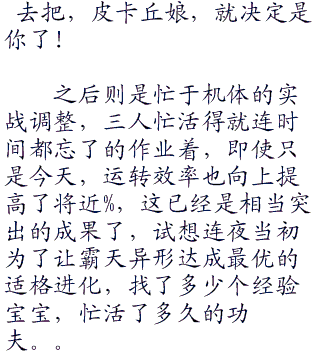 去把，皮卡丘娘，就决定是
你了！
之后则是忙于机体的实
战调整，三人忙活得就连时
间都忘了的作业着，即使只
是今天，运转效率也向上提
高了将近%，这已经是相当突
出的成果了，试想连夜当初
为了让霸天异形达成最优的
适格进化，找了多少个经验
宝宝，忙活了多久的功
夫。。